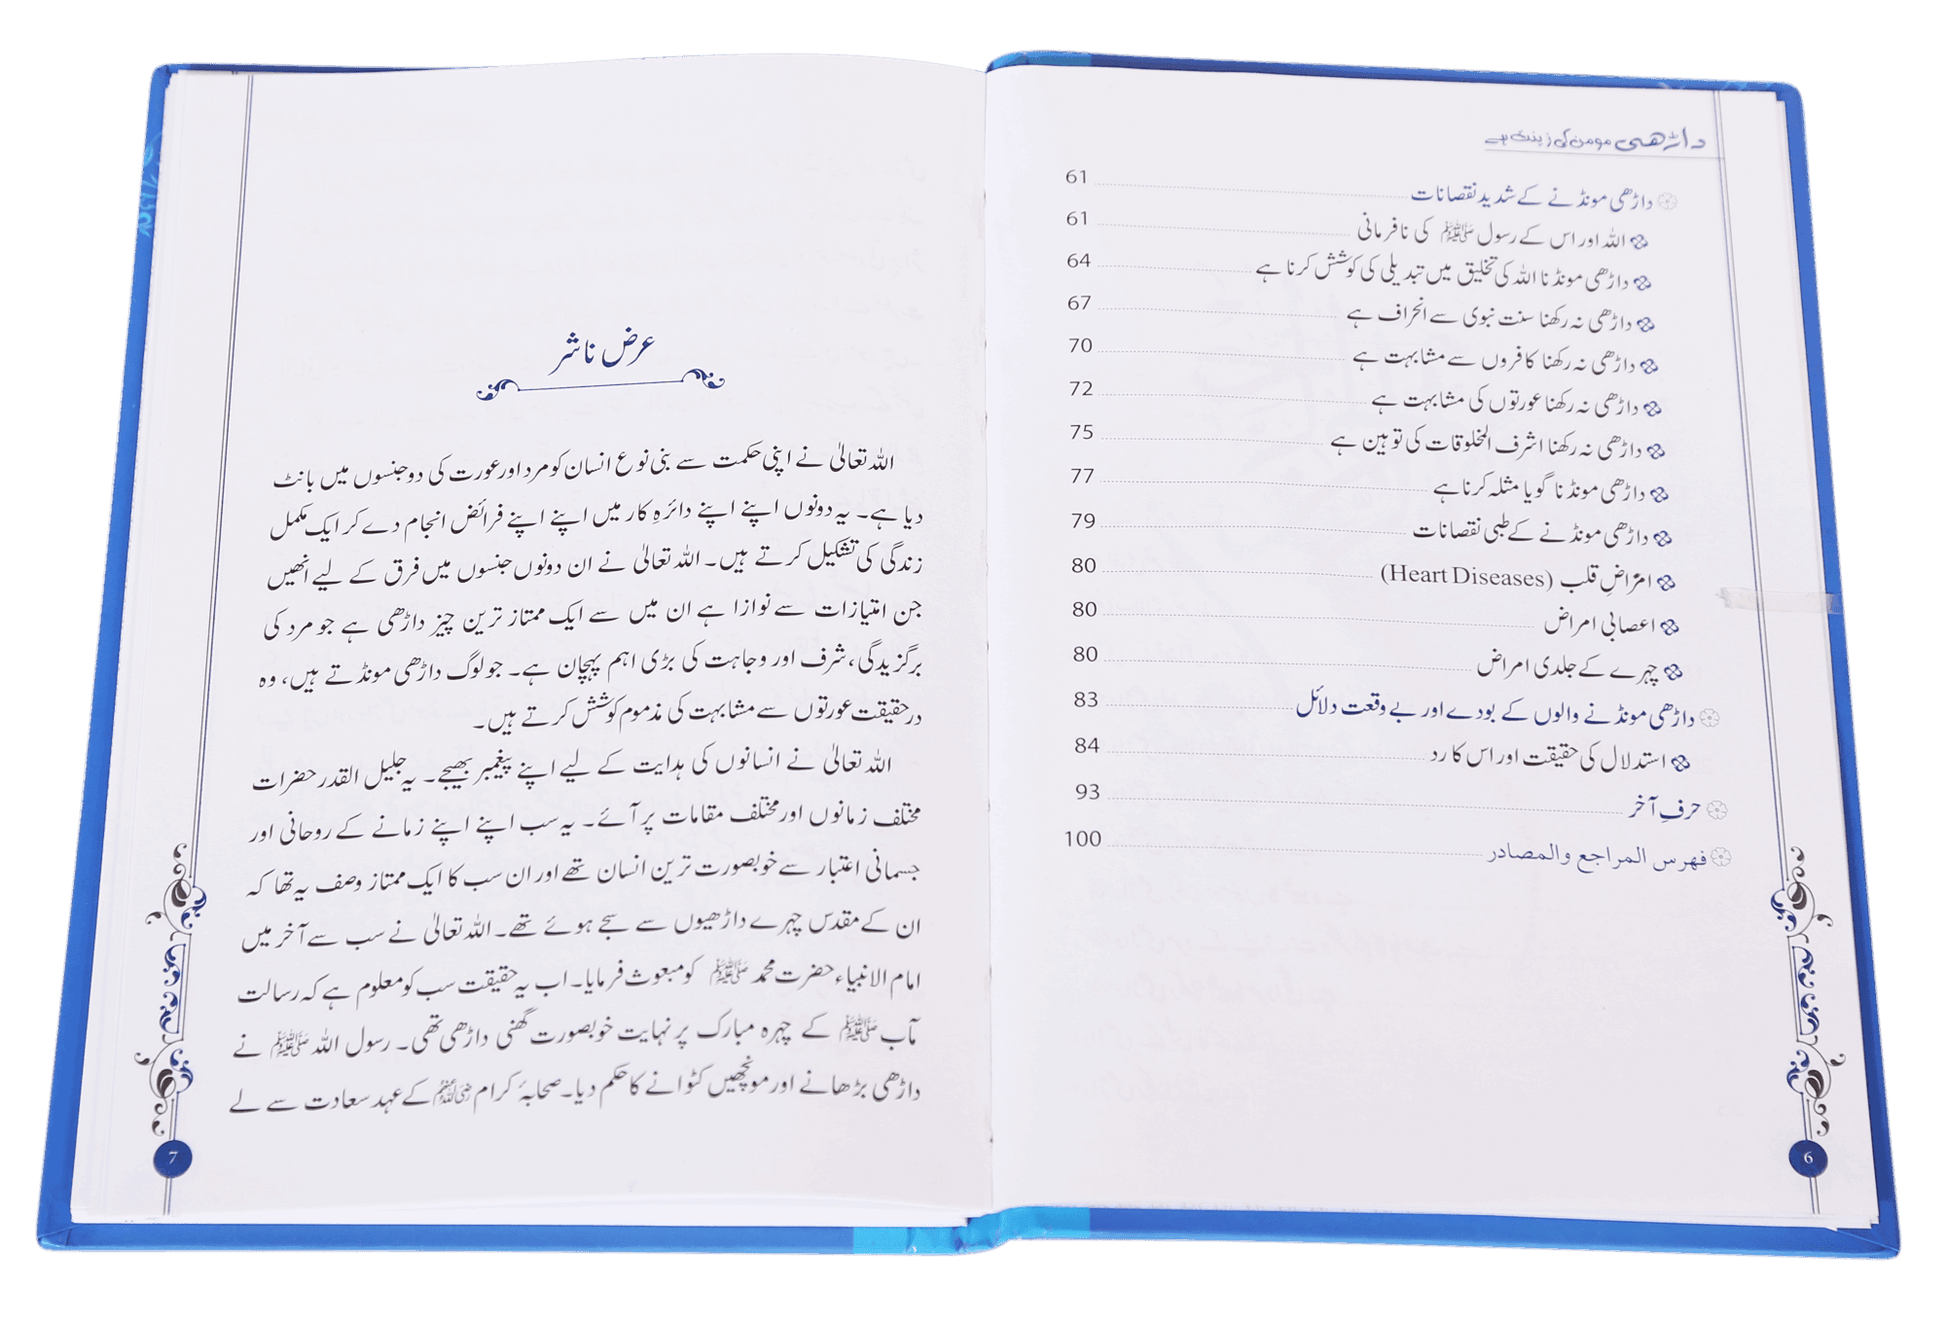 داڑھی مومن کی زینت ہے
داڑھی مونڈنے کے شدید نقصانات 61
اللہ اور اس کے رسول ﷺ کی نافرمانی 61
داڑھی مونڈنا اللہ کی تخلیق میں تبدیلی کی کوشش کرنا ہے 64
داڑھی نہ رکھنا سنت نبوی سے انحراف ہے 67
داڑھی نہ رکھنا کافروں سے مشابہت ہے 70
داڑھی نہ رکھنا عورتوں کی مشابہت ہے 72
داڑھی نہ رکھنا اشرف المخلوقات کی توہین ہے 75
داڑھی مونڈنا گویا مثلہ کرنا ہے 77
داڑھی مونڈنے کے طبی نقصانات 79
امراضِ قلب (Heart Diseases) 80
اعصابی امراض 80
چہرے کے جلدی امراض 80
داڑھی مونڈنے والوں کے بودے اور بے وقعت دلائل 83
استدلال کی حقیقت اور اس کا رد 84
حرفِ آخر 93
فہرس المراجع والمصادر 100
6
عرض ناشر
اللہ تعالیٰ نے اپنی حکمت سے بنی نوع انسان کو مرد اور عورت کی دو جنسوں میں بانٹ
دیا ہے۔ یہ دونوں اپنے اپنے دائرہِ کار میں اپنے اپنے فرائض انجام دے کر ایک مکمل
زندگی کی تشکیل کرتے ہیں۔ اللہ تعالیٰ نے ان دونوں جنسوں میں فرق کے لیے انھیں
جن امتیازات سے نوازا ہے ان میں سے ایک ممتاز ترین چیز داڑھی ہے جو مرد کی
برگزیدگی، شرف اور وجاہت کی بڑی اہم پہچان ہے۔ جو لوگ داڑھی مونڈتے ہیں، وہ
درحقیقت عورتوں سے مشابہت کی مذموم کوشش کرتے ہیں۔
اللہ تعالیٰ نے انسانوں کی ہدایت کے لیے اپنے پیغمبر بھیجے۔ یہ جلیل القدر حضرات
مختلف زمانوں اور مختلف مقامات پر آئے۔ یہ سب اپنے اپنے زمانے کے روحانی اور
جسمانی اعتبار سے خوبصورت ترین انسان تھے اور ان سب کا ایک ممتاز وصف یہ تھا کہ
ان کے مقدس چہرے داڑھیوں سے سجے ہوئے تھے۔ اللہ تعالیٰ نے سب سے آخر میں
امام الانبیاء حضرت محمد ﷺ کو مبعوث فرمایا۔ اب یہ حقیقت سب کو معلوم ہے کہ رسالت
مآب ﷺ کے چہرہ مبارک پر نہایت خوبصورت گھنی داڑھی تھی۔ رسول اللہ ﷺ نے
داڑھی بڑھانے اور مونچھیں کٹوانے کا حکم دیا۔ صحابۂ کرام رضی اللہ عنہم کے عہد سعادت سے لے
7